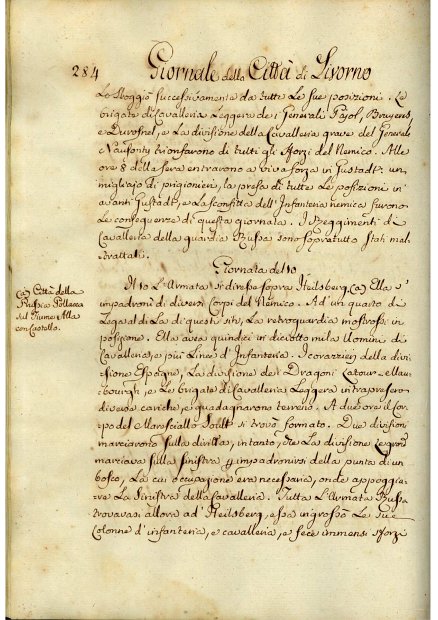 284
Giornale della Città di Livorno
Lo sloggiò successivamente da tutte Le sue posizioni. Le
brigate di Cavalleria Leggera de i Generali Pajol, Bruyeres,
e Durosnel, e La divisione della Cavalleria grave del Generale
Nansouty trionfarono di tutti gli sforzi del Nemico. Alle
ore 8 della sera entrarono a viva forza in Gustadt: un
migliajo di prigionieri, la presa di tutte Le posizioni in
avanti Gustadt, e La sconfitta dell'Infanteria nemica furono
Le conseguenze di questa giornata. I Reggimenti di
Cavalleria della guardia Russa sono sopratutto stati mal
trattati.
Giornata del 10
Il 10 L'Armata si diresse sopra Heilsberg. (a) Ella s'
impadronì di diversi Corpi del Nemico. Ad un quarto di
Lega al di La di questi siti, La retroguardia mostrossi in
posizione. Ella avea quindici in diciotto mila Uomini di
Cavalleria, e più Linee d'Infanteria. I corazzieri della divi-
sione Espagne, La divisione de i Dragoni Latour-Mau-
bourgh, e Le brigate di Cavalleria Leggera intrapresero
diverse cariche, e guadagnarono terreno. A due ore il Cor-
po del Maresciallo Soult si trovò formato. Due divisioni
marciarono sulla diritta, intanto, che La divisione Legrand
marciava sulla sinistra per impadronirsi della punta di un
bosco, La cui occupazione era necessaria, onde appoggia-
re La sinistra della Cavalleria. Tutta L'Armata Russa
trovavasi allora ad Heilsberg, essa ingrossò Le sue
Colonne d'infanteria, e cavalleria, e fece immensi sforzi
(a) Città della
Prussia Pollacca
sul Fiume Alla
con Castello.